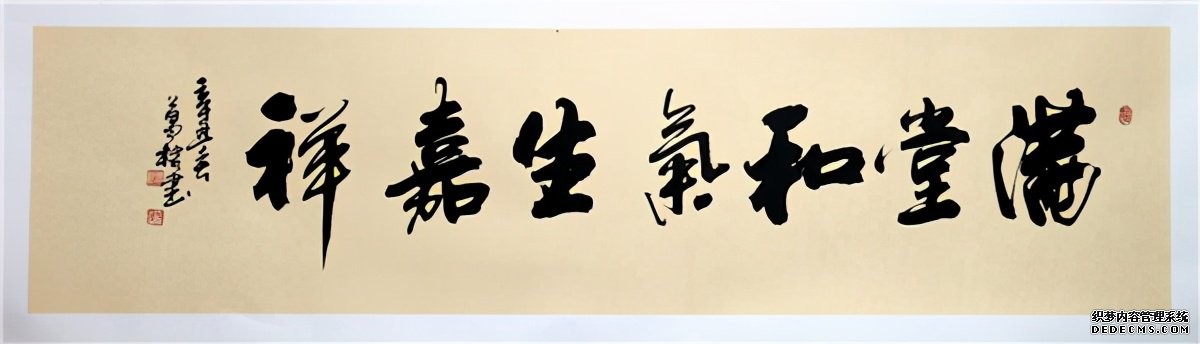 滿堂和氣生嘉祥
辛丑
書
织梦内容管理系统
DEDECMS.COM